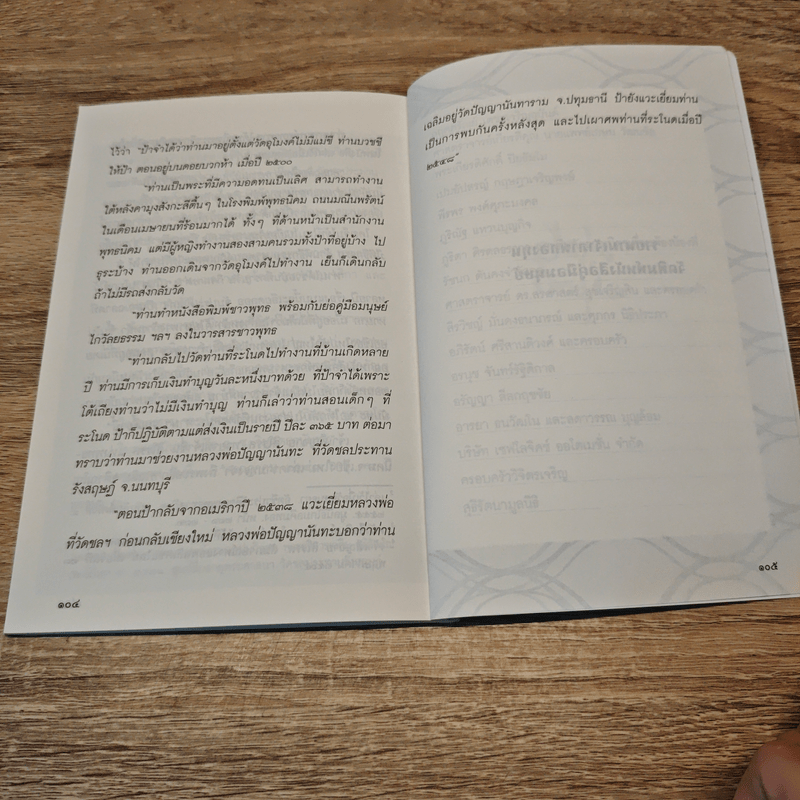 ไว้ว่า "ป้าจำได้ว่าท่านมาอยู่ตั้งแต่วัดอุโมงค์ไม่มีแม่ชี ท่านบวชชี
ให้ป้า ตอนอยู่บนดอยบวกห้า เมื่อปี ๒๕๐๐
"ท่านเป็นพระที่มีความอดทนเป็นเลิศ สามารถทำงาน
ใต้หลังคามุงสังกะสีตื้นๆ ในโรงพิมพ์พุทธนิคม ถนนมณีนพรัตน์
ในเดือนเมษายนที่ร้อนมากได้ ทั้งๆ ที่ด้านหน้าเป็นสำนักงาน
พุทธนิคม แต่มีผู้หญิงทำงานสองสามคนรวมทั้งป้าที่อยู่บ้าง ไป
ธุระบ้าง ท่านออกเดินจากวัดอุโมงค์ไปทำงาน เย็นก็เดินกลับ
ถ้าไม่มีรถส่งกลับวัด
"ท่านทำหนังสือพิมพ์ชาวพุทธ พร้อมกับย่อคู่มือมนุษย์
ไกวัลยธรรม ฯลฯ ลงในวารสารชาวพุทธ
"ท่านกลับไปวัดท่านที่ระโนดไปทำงานที่บ้านเกิดหลาย
ปี ท่านมีการเก็บเงินทำบุญวันละหนึ่งบาทด้วย ที่ป้าจำได้เพราะ
โต้เถียงท่านว่าไม่มีเงินทำบุญ ท่านก็เล่าว่าท่านสอนเด็กๆ ที่
ระโนด ป้าก็ปฏิบัติตามแต่ส่งเงินเป็นรายปี ปีละ ๓๖๕ บาท ต่อมา
ทราบว่าท่านมาช่วยงานหลวงพ่อปัญญานันทะ ที่วัดชลประทาน
รังสฤษฎ์ จ.นนทบุรี
"ตอนป้ากลับจากอเมริกาปี ๒๕๓๘ แวะเยี่ยมหลวงพ่อ
ที่วัดชลฯ ก่อนกลับเชียงใหม่ หลวงพ่อปัญญานันทะบอกว่าท่าน
๑๐๔
เฉลิมอยู่วัดปัญญานันทาราม จ.ปทุมธานี ป้ายังแวะเยี่ยมท่าน
เป็นการพบกันครั้งหลังสุด และไปเผาศพท่านที่ระโนดเมื่อปี
๒๕๔๘"
๑๐๕